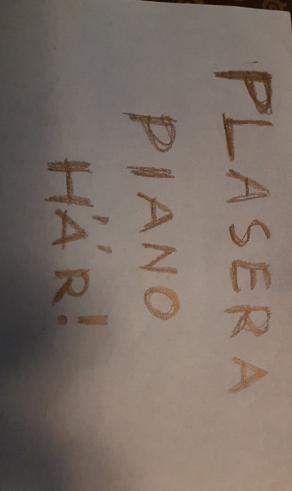 PLASERA
PIANO
HÄR!